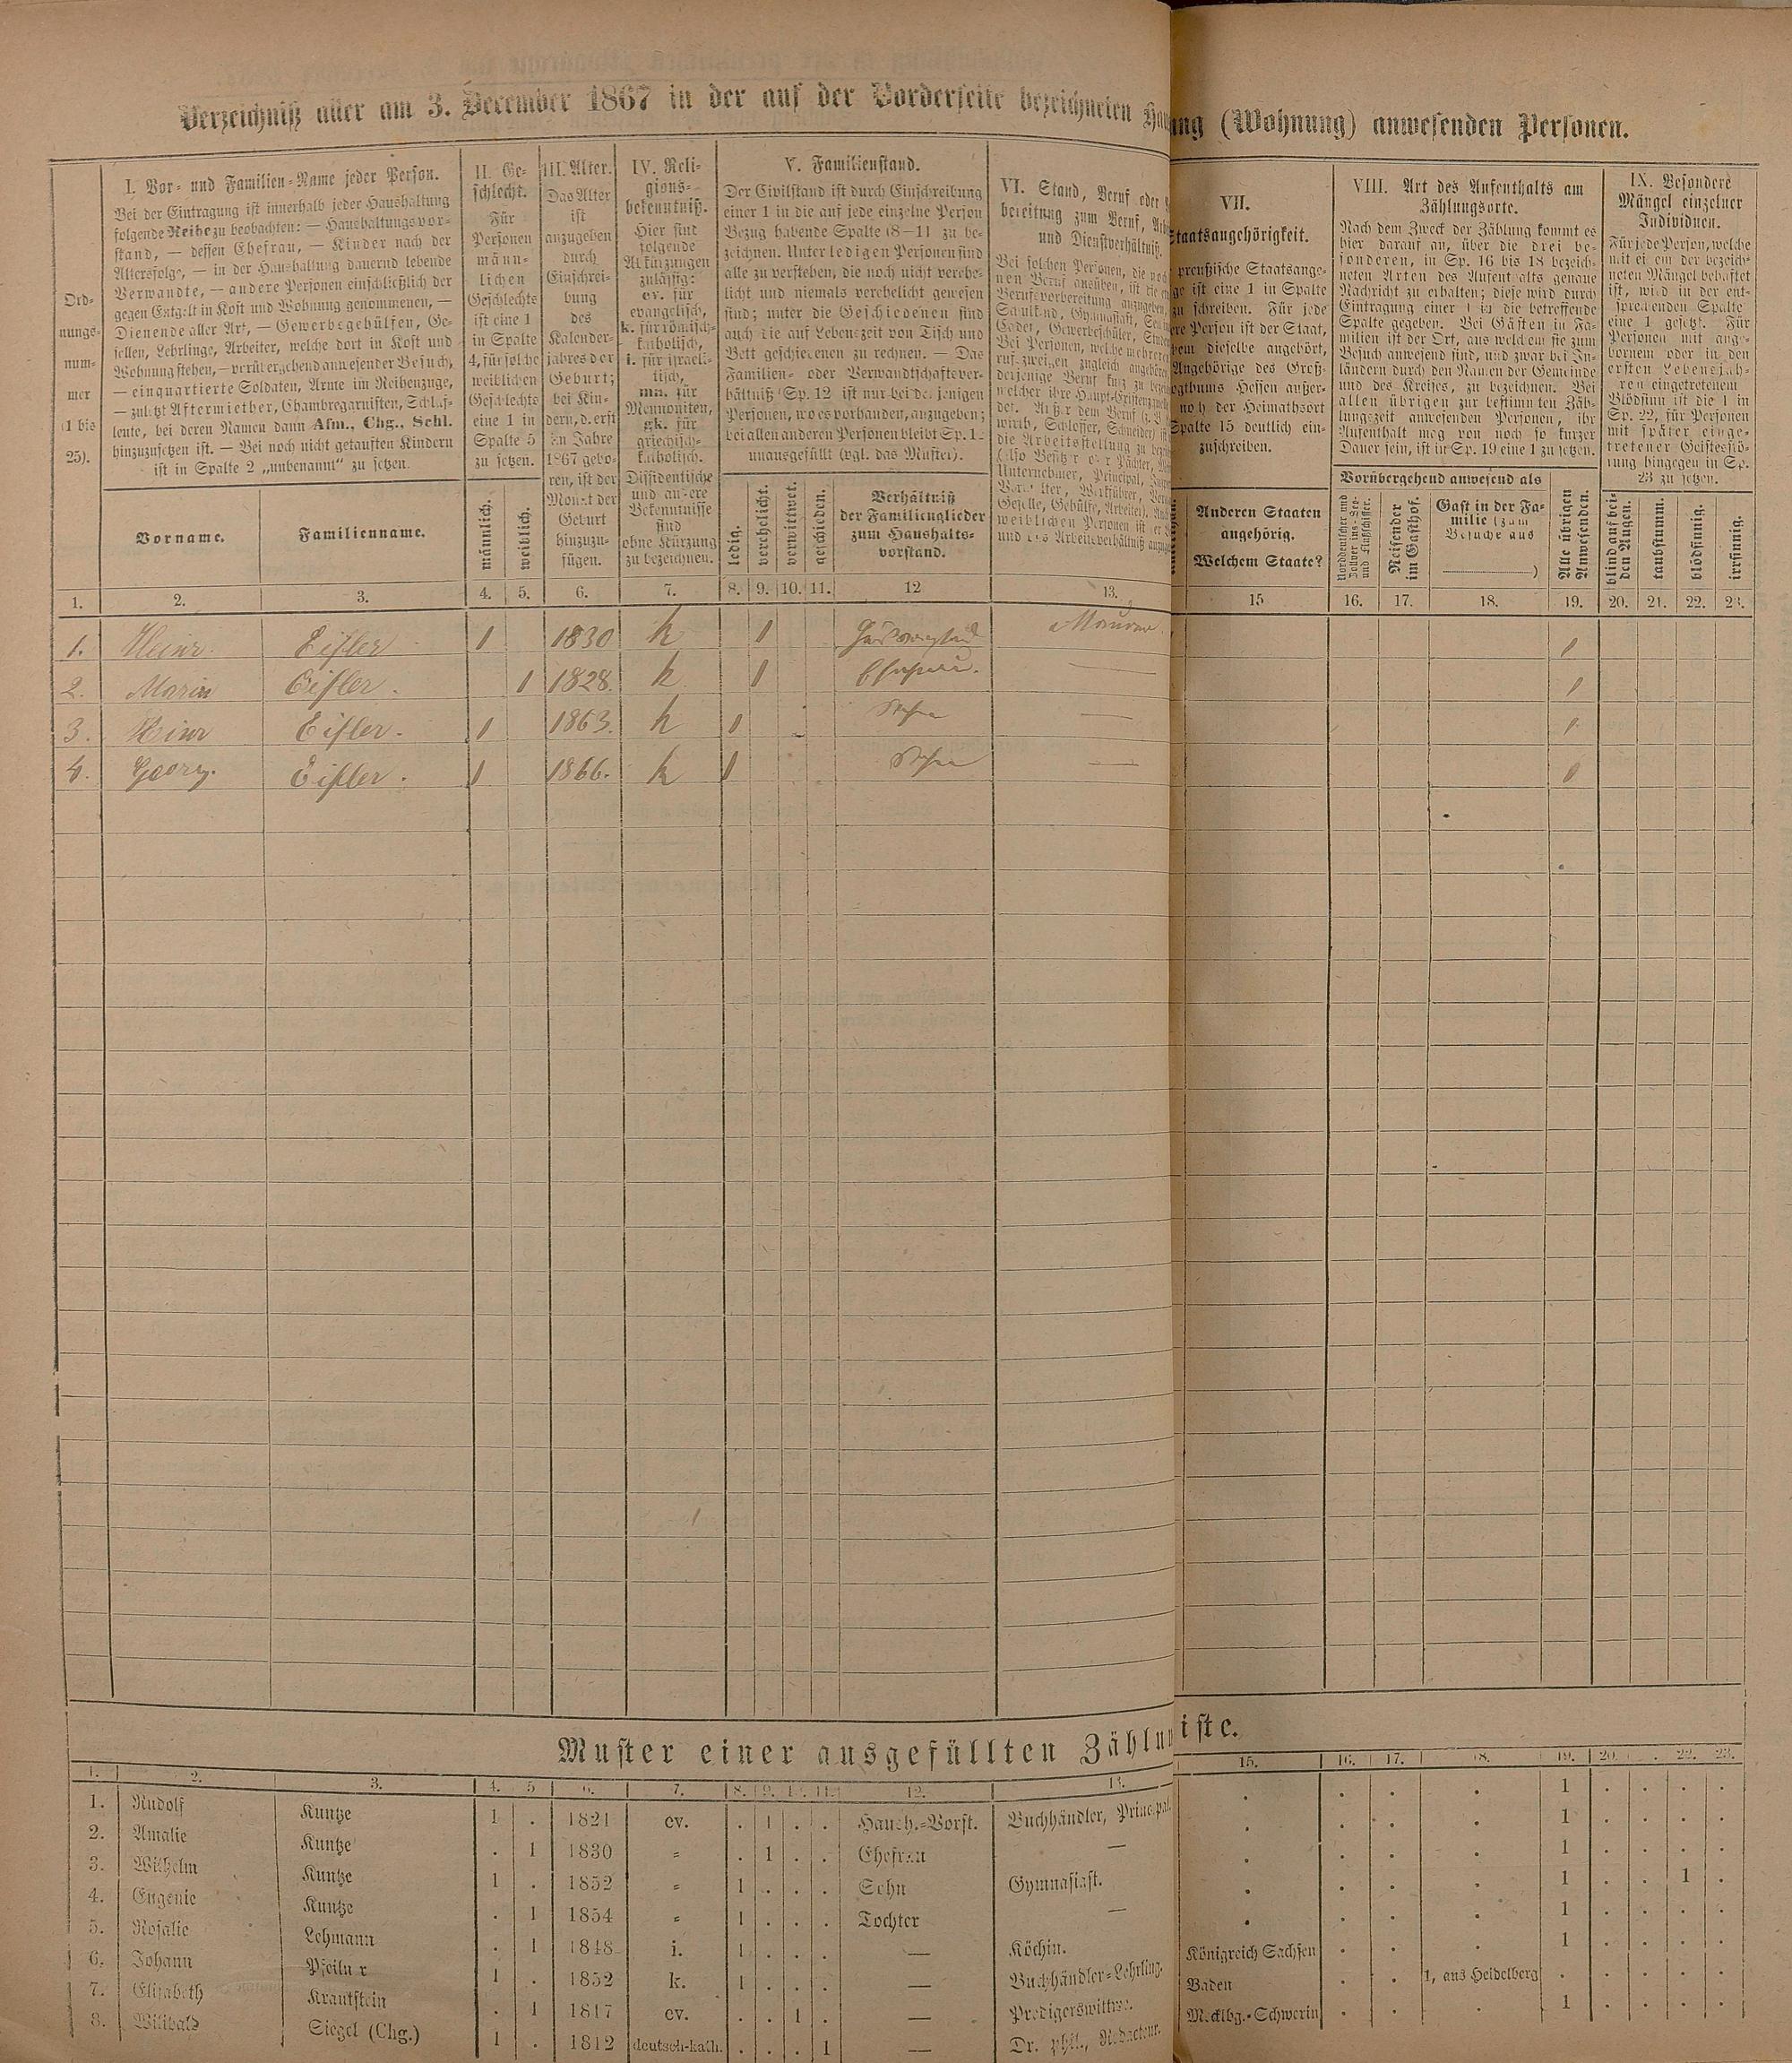 Verzeichniß aller am 3. December 1867 in der auf der Vorderseite bezeichneten Hau
ng (Wohnung) anwesenden Personen.
Ord-
nungs-
num-
mer
(1 bis
25).
I. Vor- und Familien-Name jeder Person.
Bei der Eintragung ist innerhalb jeder Haushaltung
folgende Reihe zu beobachten: — Haushaltungsvor-
stand, — dessen Ehefrau, — Kinder nach der
Altersfolge, — in der Haushaltung dauernd lebende
Verwandte, — andere Personen einschließlich der
gegen Entgelt in Kost und Wohnung genommenen, —
Dienende aller Art, — Gewerbsgehülfen, Ge-
sellen, Lehrlinge, Arbeiter, welche dort in Kost und
Wohnung stehen, — vorübergehend anwesender Besuch,
— einquartierte Soldaten, Arme im Reihenzuge,
— zuletzt Aftermiether, Chambregarnisten, Schlaf-
leute, bei deren Namen dann Afm., Chg., Schl.
hinzuzusetzen ist. — Bei noch nicht getauften Kindern
ist in Spalte 2 „unbenannt“ zu setzen.
Vorname.
Familienname.
II. Ge-
schlecht.
Für
Personen
männ-
lichen
Geschlechts
ist eine 1
in Spalte
4, für solche
weiblichen
Geschlechts
eine 1 in
Spalte 5
zu setzen.
männlich.
weiblich.
III. Alter.
Das Alter
ist
anzugeben
durch
Einschrei-
bung
des
Kalender-
jahres der
Geburt;
bei Kin-
dern, d. erst
im Jahre
1867 gebo-
ren, ist der
Monat der
Geburt
hinzuzu-
fügen.
IV. Reli-
gions-
bekenntniß.
Hier sind
folgende
Abkürzungen
zulässig:
ev. für
evangelisch,
k. für römisch-
katholisch,
i. für israeli-
tisch,
mn. für
Mennoniten,
gk. für
griechisch-
katholisch.
Dissidentische
und andere
Bekenntnisse
sind
ohne Kürzung
zu bezeichnen.
V. Familienstand.
Der Civilstand ist durch Einschreibung
einer 1 in die auf jede einzelne Person
Bezug habende Spalte (8—11) zu be-
zeichnen. Unter ledigen Personen sind
alle zu verstehen, die noch nicht verehe-
licht und niemals verehelicht gewesen
sind; unter die Geschiedenen sind
auch die auf Lebenszeit von Tisch und
Bett geschiedenen zu rechnen. — Das
Familien- oder Verwandtschaftsver-
hältniß (Sp. 12) ist nur bei denjenigen
Personen, wo es vorhanden, anzugeben;
bei allen anderen Personen bleibt Sp. 12
unausgefüllt (vgl. das Muster).
ledig.
verehelicht.
verwittwet.
geschieden.
Verhältniß
der Familienglieder
zum Haushalts-
vorstand.
VI. Stand, Beruf oder
bereitung zum Beruf,
und Dienstverhältniß.
Bei solchen Personen, die noch
nen Beruf ausüben, ist die
Berufsvorbereitung anzugeben,
Schulkind, Gymnasiast,
Cadet, Gewerbeschüler,
Bei Personen, welche mehreren
rufszweigen zugleich angehören
derjenige Beruf kurz zu
welcher ihre Haupt-
det. Außer dem Beruf
wirth, Schlosser, Schneider)
die Arbeitsstellung zu
(also Besitzer oder Pächter,
Unternehmer, Principal,
Verwalter, Werkführer,
Geselle, Gehülfe, Arbeiter).
weiblichen Personen ist
und das Arbeitsverhältniß
VII.
taatsangehörigkeit.
preußische Staatsange-
ge ist eine 1 in Spalte
zu schreiben. Für jede
ere Person ist der Staat,
em dieselbe angehört,
Angehörige des Groß-
ogthums Hessen außer-
noch der Heimathsort
Spalte 15 deutlich ein-
zuschreiben.
Anderen Staaten
angehörig.
Welchem Staate?
VIII. Art des Aufenthalts am
Zählungsorte.
Nach dem Zweck der Zählung kommt es
hier darauf an, über die drei be-
sonderen, in Sp. 16 bis 18 bezeich-
neten Arten des Aufenthalts genaue
Nachricht zu erhalten; diese wird durch
Eintragung einer 1 in die betreffende
Spalte gegeben. Bei Gästen in Fa-
milien ist der Ort, aus welchem sie zum
Besuch anwesend sind, und zwar bei In-
ländern durch den Namen der Gemeinde
und des Kreises, zu bezeichnen. Bei
allen übrigen zur bestimmten Zäh-
lungszeit anwesenden Personen, ihr
Aufenthalt mag von noch so kurzer
Dauer sein, ist in Sp. 19 eine 1 zu setzen.
Vorübergehend anwesend als
Norddeutscher und
Zollvereins-See-
und Flußschiffer.
Reisender
im Gasthof.
Gast in der Fa-
milie (zum
Besuche aus
)
Alle übrigen
Anwesenden.
IX. Besondere
Mängel einzelner
Individuen.
Für jede Person, welche
mit einem der bezeich-
neten Mängel behaftet
ist, wird in der ent-
sprechenden Spalte
eine 1 gesetzt. Für
Personen mit ange-
bornem oder in den
ersten Lebensjah-
ren eingetretenem
Blödsinn ist die 1 in
Sp. 22, für Personen
mit später einge-
tretener Geistesstö-
rung hingegen in Sp.
23 zu setzen.
blind auf bei-
den Augen.
taubstumm.
blödsinnig.
irrsinnig.
1. 2. 3. 4. 5. 6. 7. 8. 9. 10. 11. 12 13. 15 16. 17. 18. 19. 20. 21. 22. 23.
1. Heinr. Eifler 1 1830 k 1 Maurer 1
2. Maria Eifler. 1 1828. k 1 Ehefrau. — 1
3. Heinr Eifler. 1 1863. k 1 Sohn — 1
4. Georg. Eifler. 1 1866. k 1 Sohn — 1
Muster einer ausgefüllten Zählu
iste.
1. 2. 3. 4. 5 6. 7. 8. 9. 11. 12. 13. 15. 16. 17. 18. 19. 20. 22. 23.
1. Rudolf Kuntze 1 . 1821 ev. . 1 . . Haush.-Vorst. Buchhändler, Principal. . . . . 1 . . . .
2. Amalie Kuntze . 1 1830 „ . 1 . . Ehefrau — . . . . 1 . . . .
3. Wilhelm Kuntze 1 . 1852 „ 1 . . . Sohn Gymnasiast. . . . . 1 . . . .
4. Eugenie Kuntze . 1 1854 „ 1 . . . Tochter — . . . . 1 . . 1 .
5. Rosalie Lehmann . 1 1848 i. 1 . . . — Köchin. . . . . 1 . . . .
6. Johann Pfeilner 1 . 1852 k. 1 . . . — Buchhändler-Lehrling. Königreich Sachsen . . . 1 . . . .
7. Elisabeth Krautstein . 1 1817 ev. . . 1 . — Predigerswittwe. Baden . . 1, aus Heidelberg . . . . .
8. Willibald Siegel (Chg.) 1 . 1812 deutsch-kath. . . . 1 — Dr. phil., Redacteur. Mecklbg.-Schwerin . . . 1 . . . .